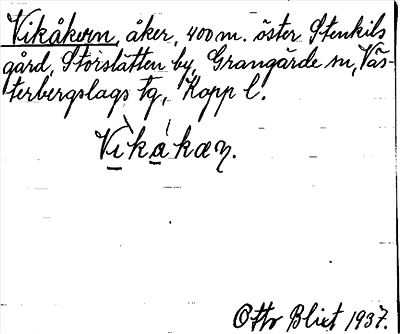 Vikåkorn, åker, 400 m. öster Stenkils
gård, Storslätten by, Grangärde sn, Väs-
terbergslags tg, Kopp l.
Vikakæɳ.
Otto Blixt 1937.